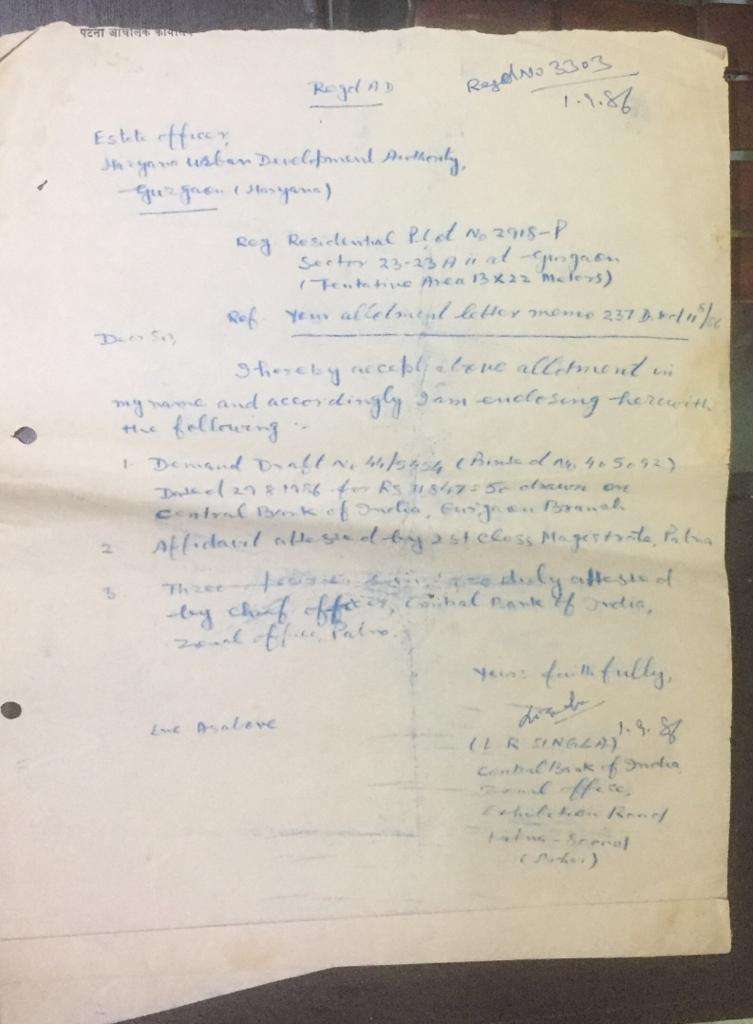 पटना आंचलिक कार्यालय
Regd AD
Regd No 3303
1.9.86
Estate officer,
Haryana Urban Development Authority,
Gurgaon (Haryana)
Reg Residential Plot No 2918-P
Sector 23-23A at Gurgaon
(Tentative Area 13x22 Meters)
Ref. Your allotment letter memo 237
Dear Sir,
I hereby accept above allotment in
my name and accordingly I am enclosing herewith
the following :-
1. Demand Draft No 44/5454
Dated 29 8 1986 for Rs 11847=50 drawn on
Central Bank of India, Gurgaon Branch
2 Affidavit attested by 1st Class Magistrate, Patna
3 Three duly attested
by Chief officer, Central Bank of India,
Zonal office, Patna.
Yours faithfully,
1.9.86
Enc As above
(L R SINGLA)
Central Bank of India
Zonal office,
Exhibition Road
Patna
(Bihar)